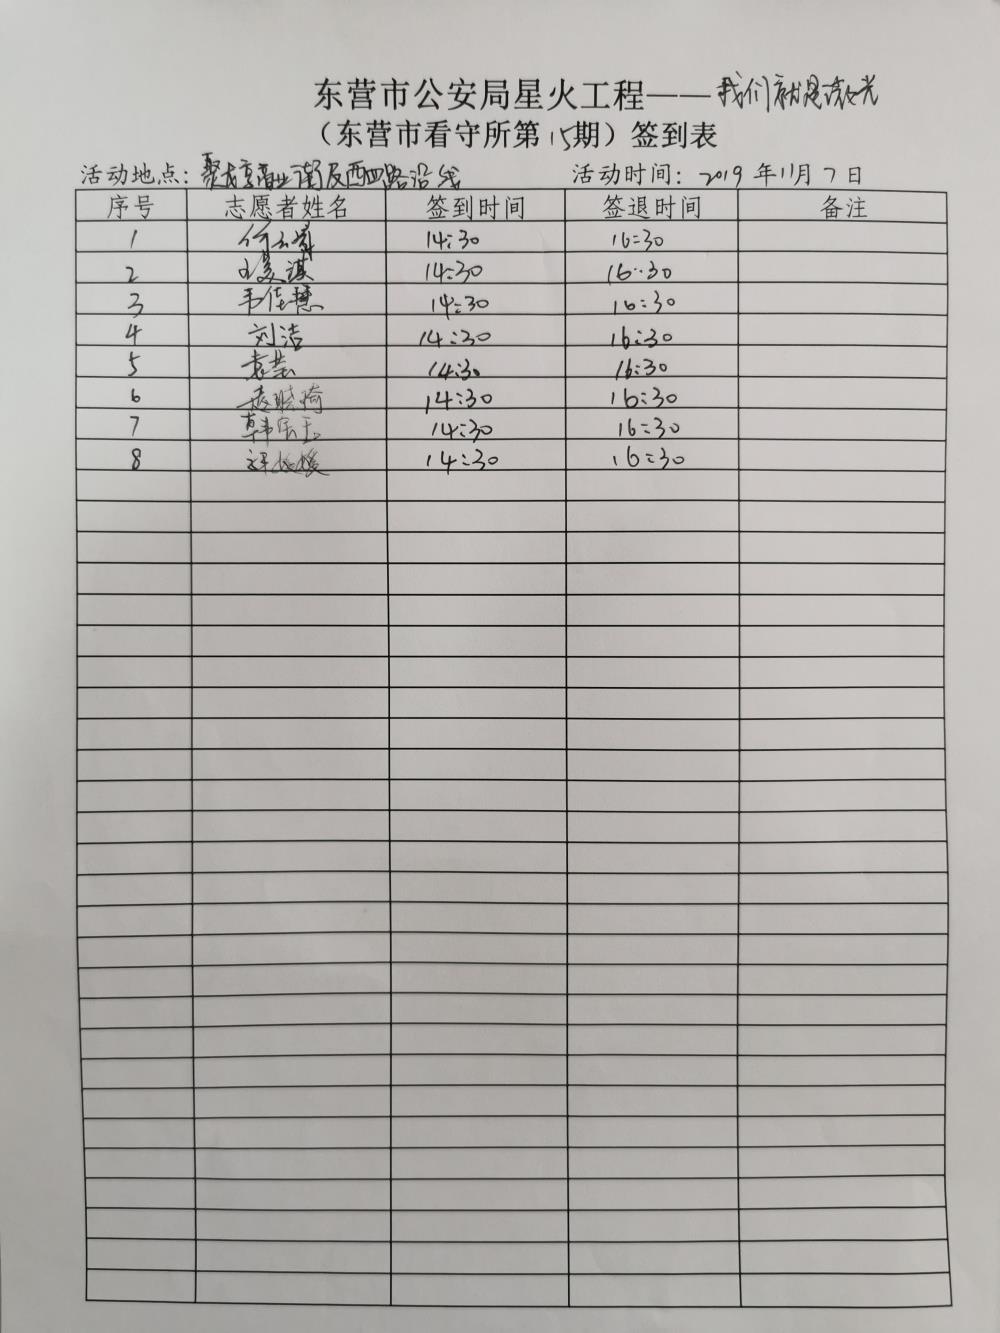 东营市公安局星火工程——我们就是微光
（东营市看守所第15期）签到表
活动地点：南及西四路沿线 活动时间：2019年11月7日
序号 志愿者姓名 签到时间 签退时间 备注
1 14:30 16:30
2 14:30 16:30
3 韦佳慧 14:30 16:30
4 刘洁 14:30 16:30
5 袁芸 14:30 16:30
6 14:30 16:30
7 韩宝玉 14:30 16:30
8 14:30 16:30